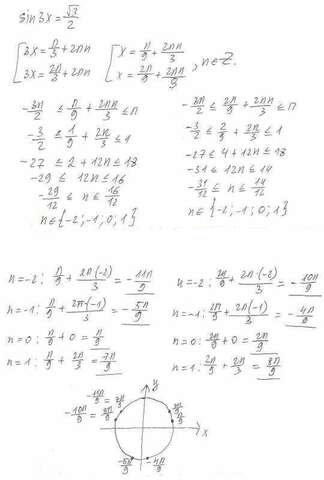 sin3x = √3/2
[3x = π/3 + 2πn [x = π/9 + 2πn/3
[3x = 2π/3 + 2πn [x = 2π/9 + 2πn/9, n∈Z.
-3π/2 ≤ π/9 + 2πn/3 ≤ π
-3/2 ≤ 1/9 + 2n/3 ≤ 1
-27 ≤ 2 + 12n ≤ 18
-29 ≤ 12n ≤ 16
-29/12 ≤ n ≤ 16/12
n∈{-2; -1; 0; 1}
-3π/2 ≤ 2π/9 + 2πn/3 ≤ π
-3/2 ≤ 2/9 + 2n/3 ≤ 1
-27 ≤ 4 + 12n ≤ 18
-31 ≤ 12n ≤ 14
-31/12 ≤ n ≤ 14/12
n∈{-2; -1; 0; 1}
n=-2: π/9 + 2π·(-2)/3 = -11π/9
n=-1: π/9 + 2π·(-1)/3 = -5π/9
n=0: π/9 + 0 = π/9
n=1: π/9 + 2π/3 = 7π/9
n=-2: 2π/9 + 2π·(-2)/3 = -10π/9
n=-1: 2π/9 + 2π(-1)/3 = -4π/9
n=0: 2π/9 + 0 = 2π/9
n=1: 2π/9 + 2π/3 = 8π/9
y
-11π/9 = 7π/9
-10π/9 = 8π/9
2π/9
π/9
x
-5π/9
-4π/9